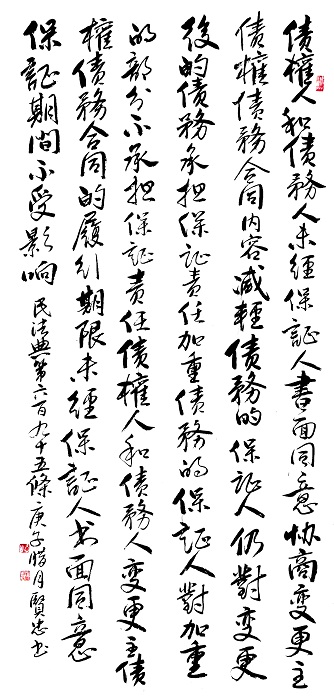 債權人和債務人未經保証人書面同意協商變更主
債權債務合同內容減輕債務的保証人仍對變更
後的債務承担保証責任加重債務的保証人對加重
的部分不承担保証責任債權人和債務人變更主債
權債務合同的履行期限未經保証人书面同意
保証期間不受影响 民法典第六百九十五條庚子腊月賢忠书